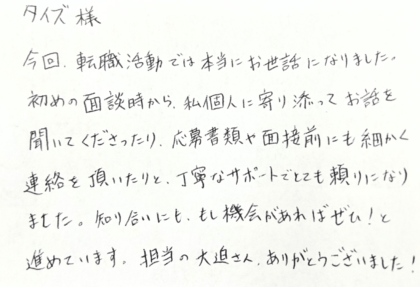 タイズ 様
今回、転職活動では本当にお世話になりました。
初めの面談時から、私個人に寄り添ってお話を
聞いてくださったり、応募書類や面接前にも細かく
連絡を頂いたりと、丁寧なサポートでとても頼りになり
ました。知り合いにも、もし機会があればぜひ！と
進めています。担当の大迫さん、ありがとうございました！